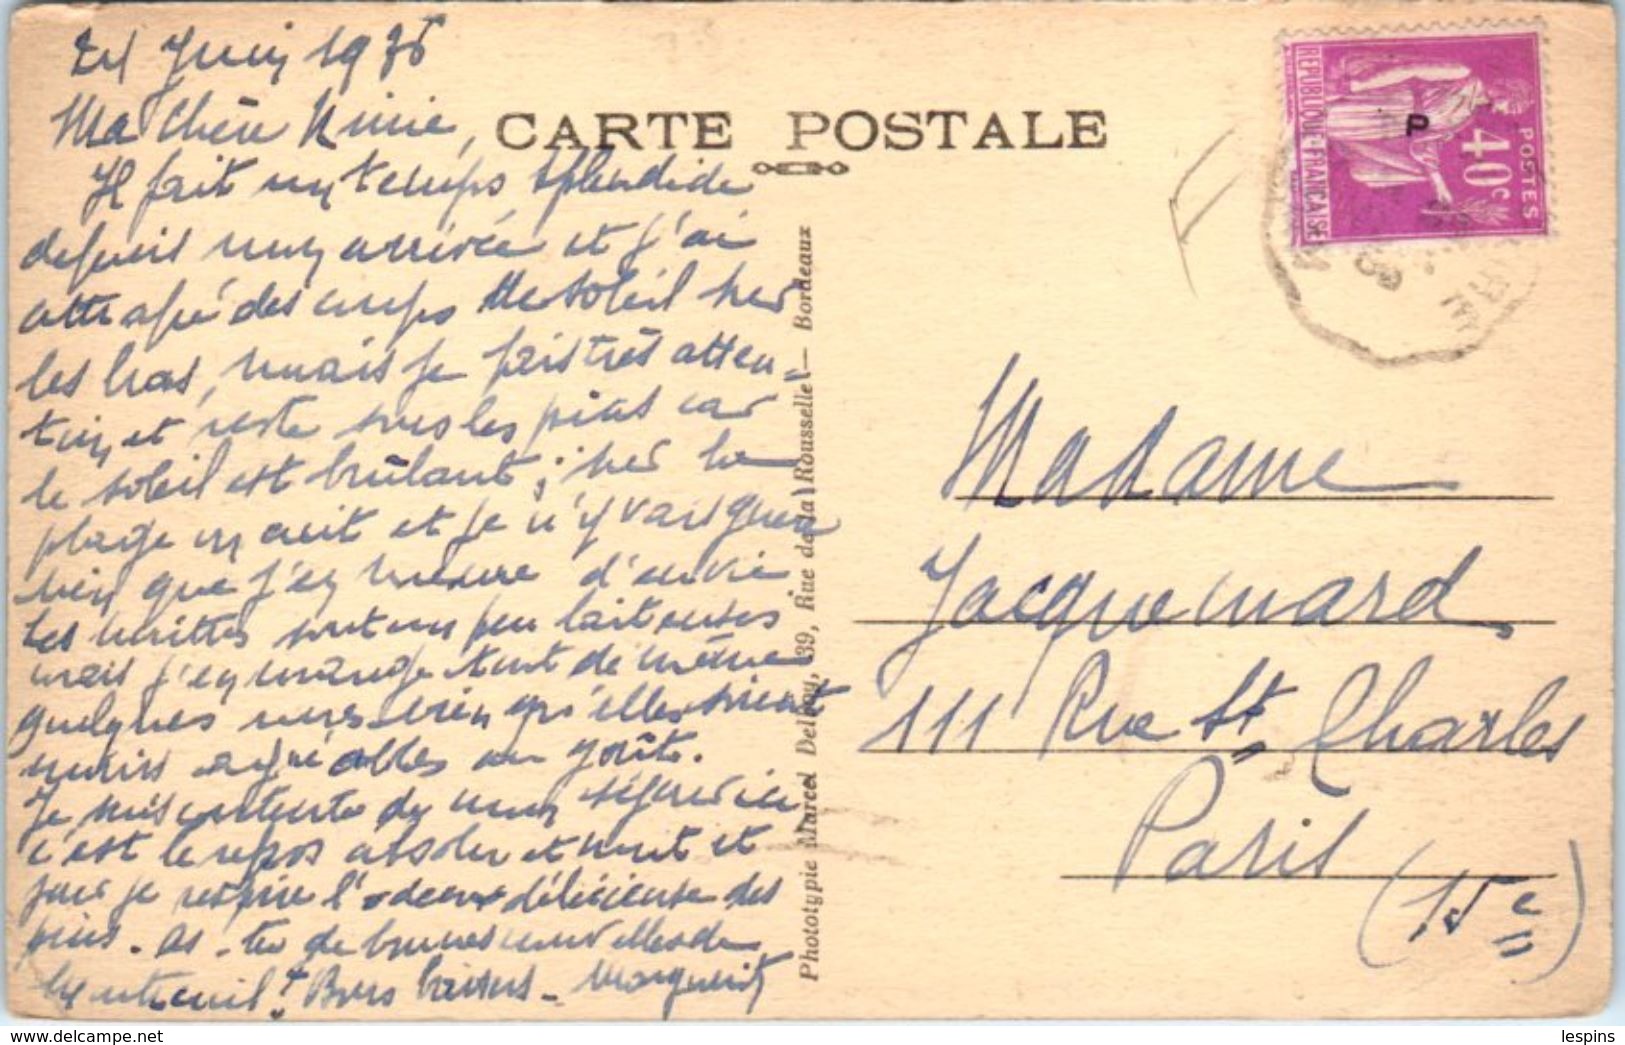 24 Juin 1935
Ma Chère Ninie,
Il fait un temps splendide
depuis mon arrivée et j'ai
attrapé des coups de soleil sur
les bras, mais je fais très atten-
tion et reste sous les pins car
le soleil est brûlant ; sur la
plage on cuit et je n'y vais guère
bien que j'en meure d'envie
Les huîtres sont un peu laiteuses
mais j'en mange tout de même
quelques unes bien qu'elles soient
moins agréables au goût.
Je suis contente de mon séjour ici
c'est le repos absolu et nuit et
jour je respire l'odeur délicieuse des
pins - As-tu de bonnes nouvelles de
Montreuil ? Bons baisers - Marguerite
CARTE POSTALE
Phototypie Marcel Delboy, 39, Rue de la Rousselle — Bordeaux
REPUBLIQUE FRANCAISE
POSTES
40c
P
Madame
Jacquemard
111 Rue St Charles
Paris (15e)
lespins